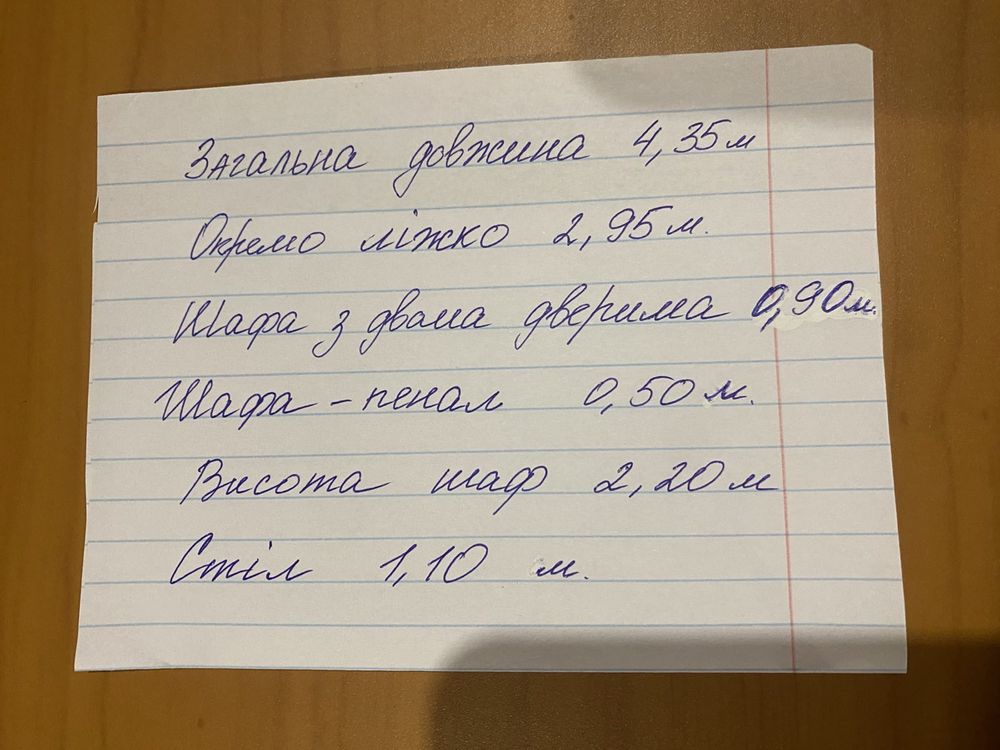 Загальна довжина 4,35м
Окремо ліжко 2,95м.
Шафа з двома дверима 0,90м.
Шафа-пенал 0,50м.
Висота шаф 2,20м
Стіл 1,10 м.